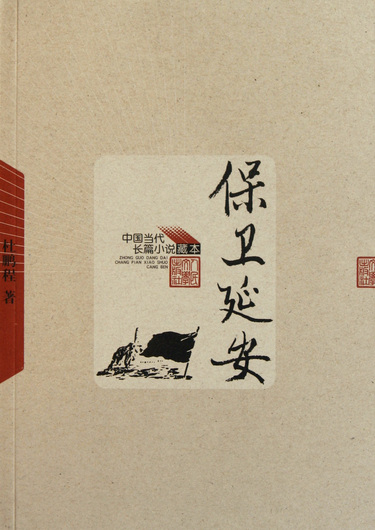 保卫延安
中国当代
长篇小说藏本
ZHONG GUO DANG DAI
CHANG PIAN XIAO SHUO
CANG BEN
人民文学出版社
杜鹏程 著